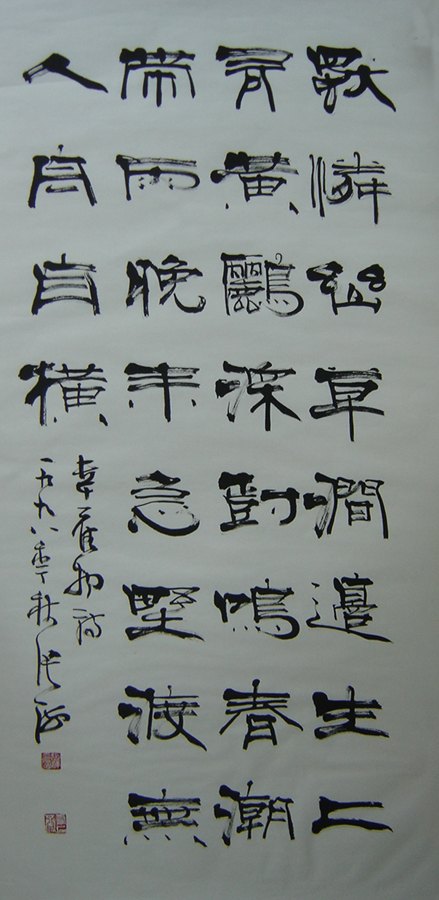 獨憐幽草澗邊生上
有黃鸝深尌鳴春潮
帶雨晚來急墅渡無
人舟自橫
韋應物詩
一九九八年秋張海